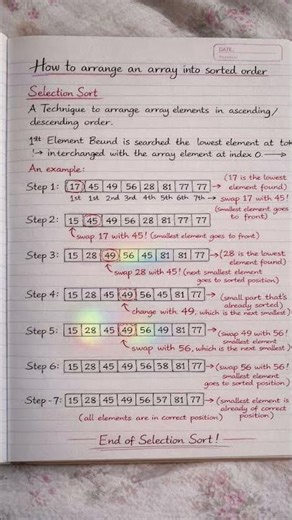 DATE:
How to arrange an array into sorted order
Selection Sort
A Technique to arrange array elements in ascending/
descending order.
1st Element Beund is searched the lowest element at tot
interchanged with the array element at index 0
An example:
(17 is the lowest
Step 1: 17 45 49 56 28 81 77 77 element found)
1st 1st 2nd 3rd 4th 5th 6th 7th → swap 17 with 45!
(smallest element goes
to front)
Step 2: 15 45 49 56 28 81 77 77
swap 17 with 45! (smallest element goes to front)
Step 3: 15 28 49 56 45 81 81 77 (28 is the lowest
element found)
swap 28 with 45! (next smallest element
goes to sorted position)
Step 4: 15 28 45 49 56 45 81 77 (small part that's
already sorted)
change with 49, which is the next smallest)
Step 5: 15 28 45 49 56 49 81 77 (swap 49 with 56!
smallest element
swap with 56, which is the next smallest)
Step 6: 15 28 45 49 56 58 81 77 (swap 56 with 56!
smallest element
goes to sorted position)
Step -7: 15 28 45 49 56 57 81 77 (smallest element is
already of correct
(all elements are in correct position) position)
End of Selection Sort!